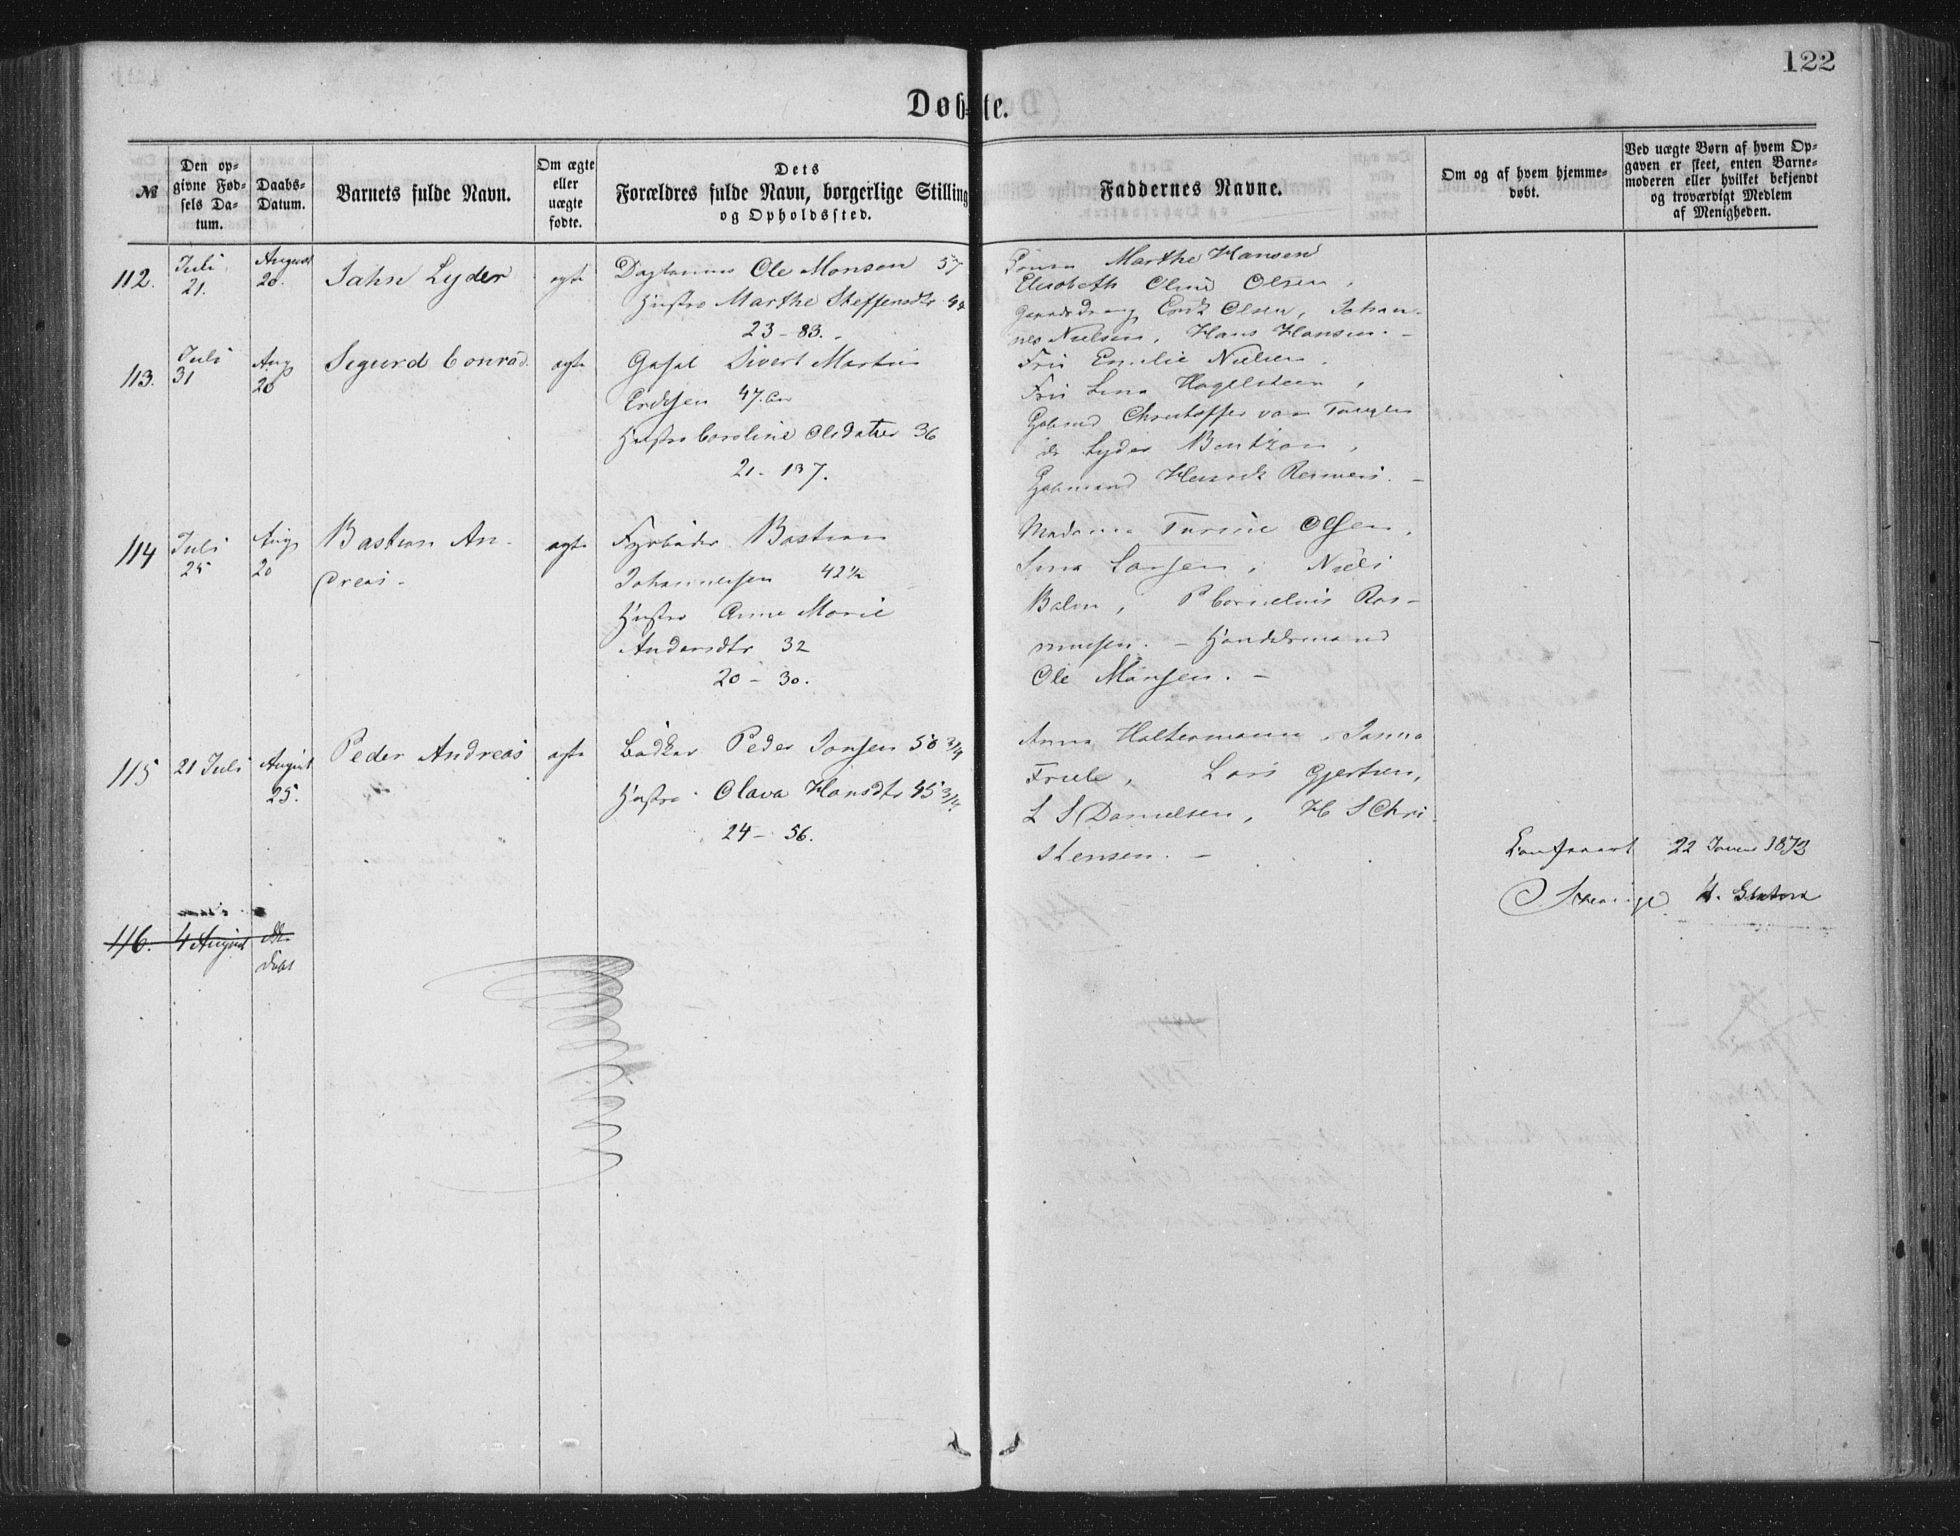 122
Døbte.
№
Den op-
givne Fød-
sels Da-
tum.
Daabs-
Datum.
Barnets fulde Navn.
Om ægte
eller
uægte
fødte.
Dets
Forældres fulde Navn, borgerlige Stilling
og Opholdssted.
Faddernes Navne.
Om og af hvem hjemme-
døbt.
Ved uægte Børn af hvem Op-
gaven er skeet, enten Barne-
moderen eller hvilket bekjendt
og troværdigt Medlem
af Menigheden.
112.
Juli
21.
August
20.
Jahn Lyder
ægte
Ole Monsen 57
Hustro Marthe Steffensdtr 44
23 - 83.
Marthe Hansen
Elisabeth Oline Olsen,
Olsen, Johan-
nes Nielsen, Hans Hansen. -
113.
Juli
31
Aug
20
Sigurd Conrad
ægte
Sivert Martin
47
Hustro Caroline Olsdatter 36
21 - 137.
Fru Emilie Nielsen,
Fru Lina Hagelsteen,
Christoffer van Tangen
do Lyder Bentzon,
Henrik Reimers. -
114
Juli
25
Aug
20
Bastian An-
dreas -
ægte
Fyrbøder Bastian
Johannesen 42½
Hustro Anne Marie
Andersdtr 32
20 - 30.
Madame Turine Olsen,
Sina Larsen, Niels
P Cornelius Ras-
mussen. - Handelsmand
Ole Monsen. -
115
21 Juli
August
25.
Peder Andreas
ægte
Bødker Peder Jonsen 50 3/4
Hustro Olava Hansdtr 45 3/4
24 - 56.
Anna Haltermann, Janna
Friele, Lars Gjertsen,
L S Danielsen, H S Chri-
stensen. -
Confereret 22 Januar 1873
116.
4 August
døbt